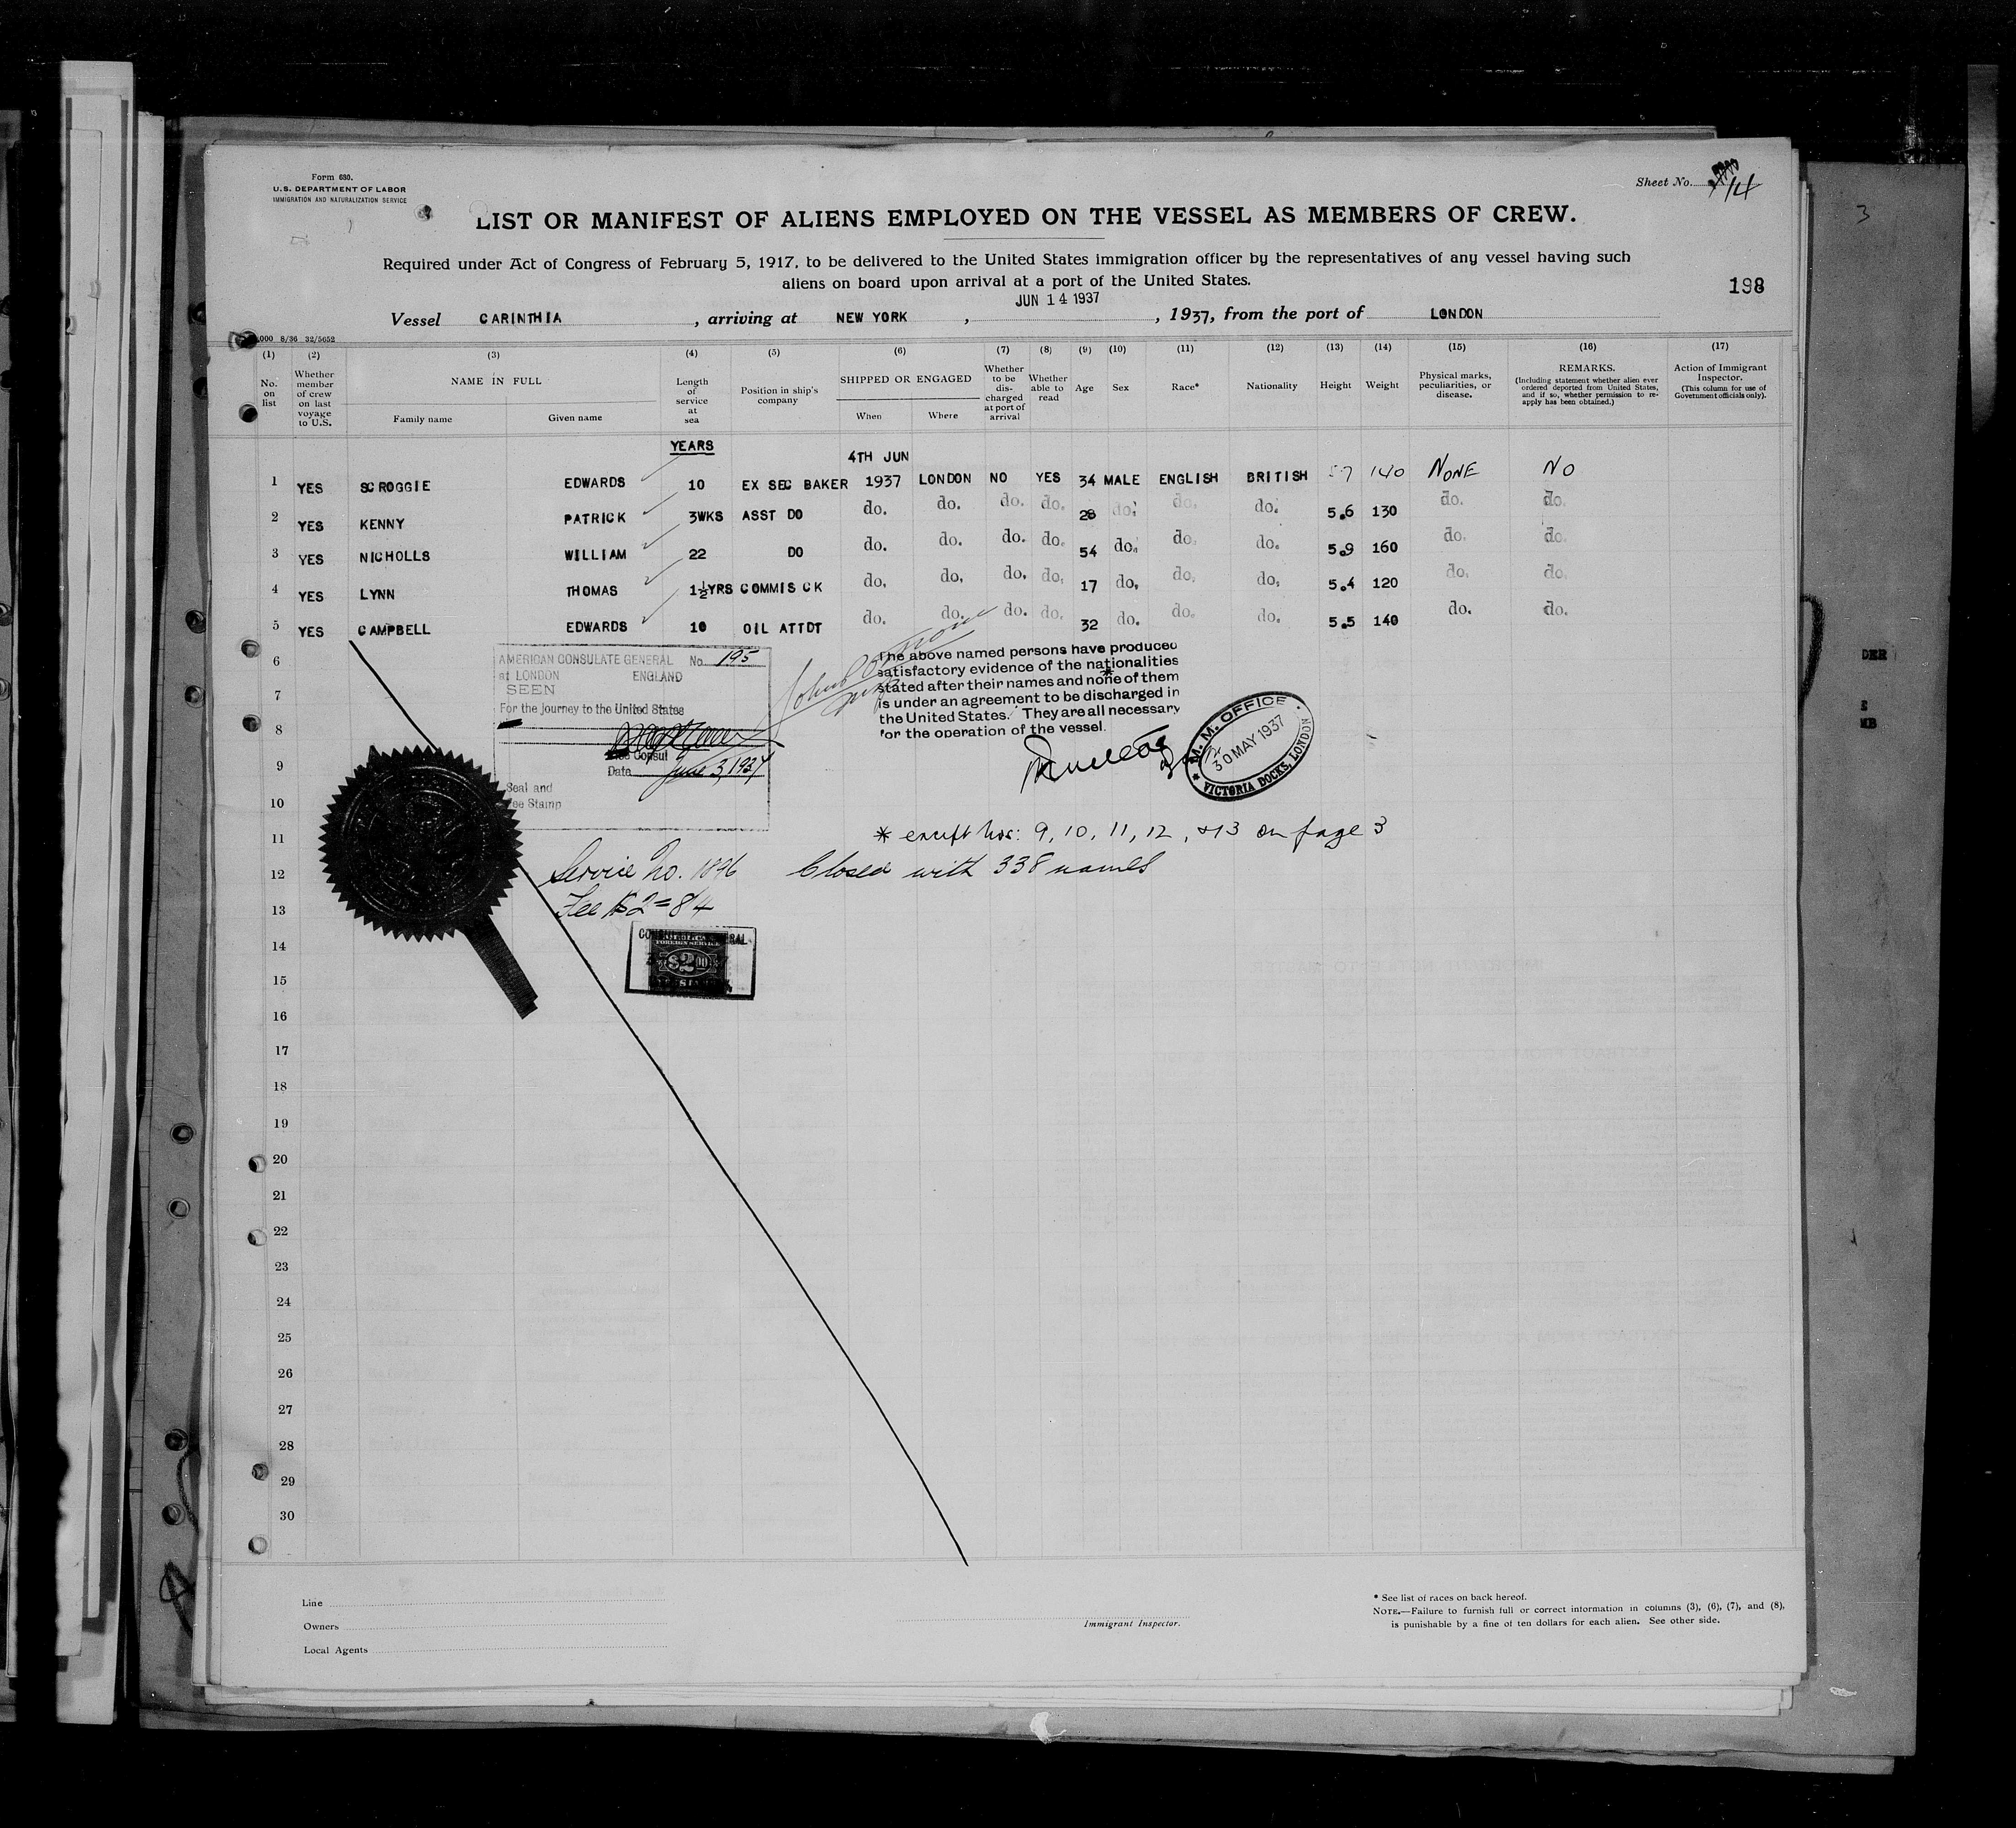 Form 680.
U.S. DEPARTMENT OF LABOR
IMMIGRATION AND NATURALIZATION SERVICE
Sheet No. 14
LIST OR MANIFEST OF ALIENS EMPLOYED ON THE VESSEL AS MEMBERS OF CREW.
Required under Act of Congress of February 5, 1917, to be delivered to the United States immigration officer by the representatives of any vessel having such
aliens on board upon arrival at a port of the United States.
198
JUN 14 1937
Vessel CARINTHIA, arriving at NEW YORK, , 1937, from the port of LONDON
000 8/36 32/5652
(1) (2) (3) (4) (5) (6) (7) (8) (9) (10) (11) (12) (13) (14) (15) (16) (17)
No. on list
Whether member of crew on last voyage to U.S.
NAME IN FULL
Family name Given name
Length of service at sea
Position in ship's company
SHIPPED OR ENGAGED
When Where
Whether to be discharged at port of arrival
Whether able to read
Age
Sex
Race*
Nationality
Height
Weight
Physical marks, peculiarities, or disease.
REMARKS.
(Including statement whether alien ever ordered deported from United States, and if so, whether permission to re-apply has been obtained.)
Action of Immigrant Inspector.
(This column for use of Government officials only).
YEARS
4TH JUN
1 YES SCROGGIE EDWARDS 10 EX SEC BAKER 1937 LONDON NO YES 34 MALE ENGLISH BRITISH 57 140 NONE NO
2 YES KENNY PATRICK 3WKS ASST DO do. do. do. do. 28 do. do. do. 5.6 130 do. do.
3 YES NICHOLLS WILLIAM 22 DO do. do. do. do. 54 do. do. do. 5.9 160 do. do.
4 YES LYNN THOMAS 1½YRS COMMIS CK do. do. do. do. 17 do. do. do. 5.4 120 do. do.
5 YES CAMPBELL EDWARDS 10 OIL ATTDT do. do. do. do. 32 do. do. do. 5.5 140 do. do.
6
7
8
9
10
11
12
13
14
15
16
17
18
19
20
21
22
23
24
25
26
27
28
29
30
AMERICAN CONSULATE GENERAL No 195
at LONDON ENGLAND
SEEN
For the journey to the United States
Vice Consul
Date June 3, 1937
Seal and
Fee Stamp
The above named persons have produced
satisfactory evidence of the nationalities
stated after their names and none* of them
is under an agreement to be discharged in
the United States. They are all necessary
for the operation of the vessel.
M. M. OFFICE
30 MAY 1937
VICTORIA DOCKS, LONDON
* except Nos: 9, 10, 11, 12, & 13 on page 3
Service No. 1896 Closed with 338 names
Fee $2 = 8/4
AMERICAN
FOREIGN SERVICE
$2.00
Line
Owners
Local Agents
Immigrant Inspector.
* See list of races on back hereof.
NOTE.—Failure to furnish full or correct information in columns (3), (6), (7), and (8),
is punishable by a fine of ten dollars for each alien. See other side.
3
DER
S
MB